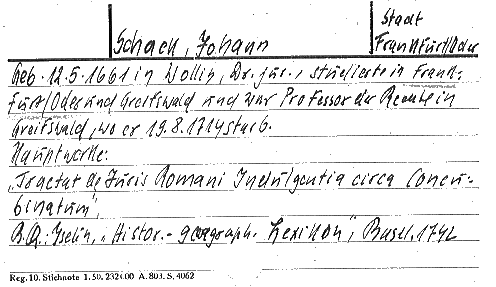 Stadt
Schack, Johann Frankfurt/Oder
Geb. 12.5.1661 in Wollin, Dr. jur., studierte in Frank-
furt/Oder und Greifswald und war Professor der Rechte in
Greifswald, wo er 19.8.1714 starb.
Hauptwerke:
„Tractat de Juris Romani Indulgentia circa Concu-
binatum",
B.Q.: Iselin, „Histor.-geograph. Lexikon", Basel. 1742
Reg. 10. Stichnote 1. 50. 2321.00 A. 803. S. 4062